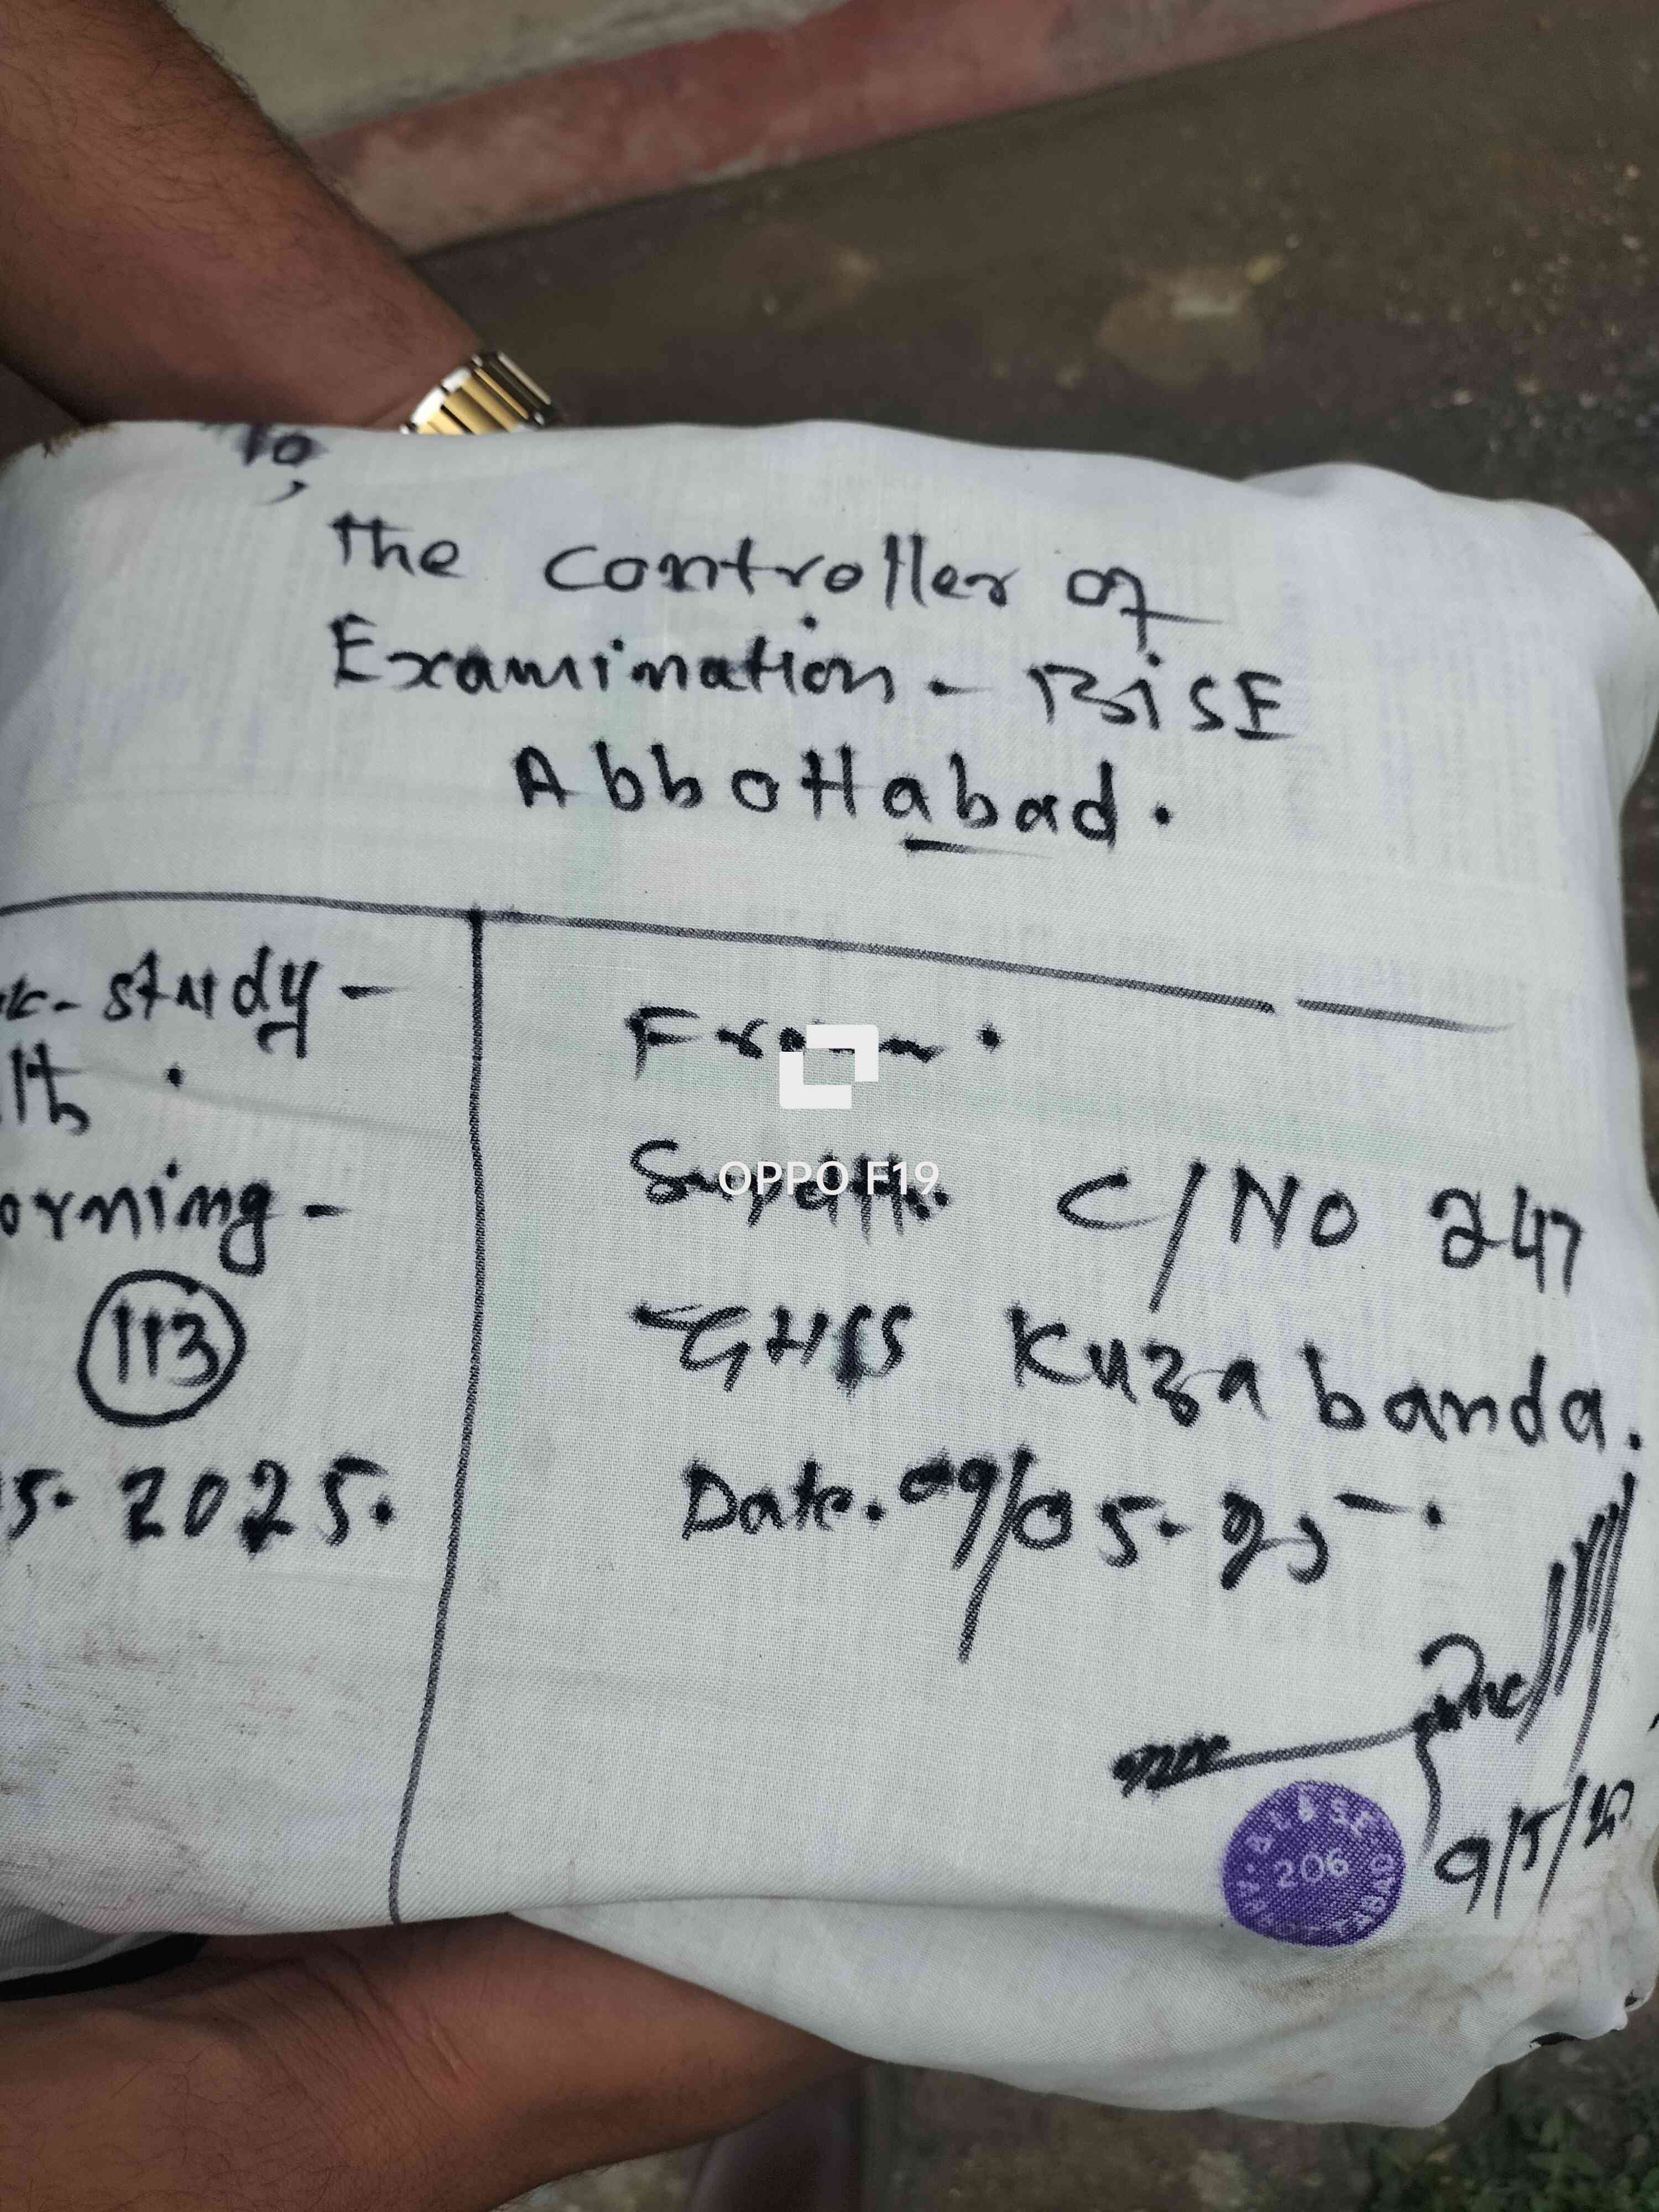 To,
the controller of
Examination - BiSE
Abbottabad.
study -
orning -
113
5. 2025.
From.
Supdtt. C/No 247
GHSS Kuzabanda.
Date. 09/05-25
9/5/25
206
OPPO F19